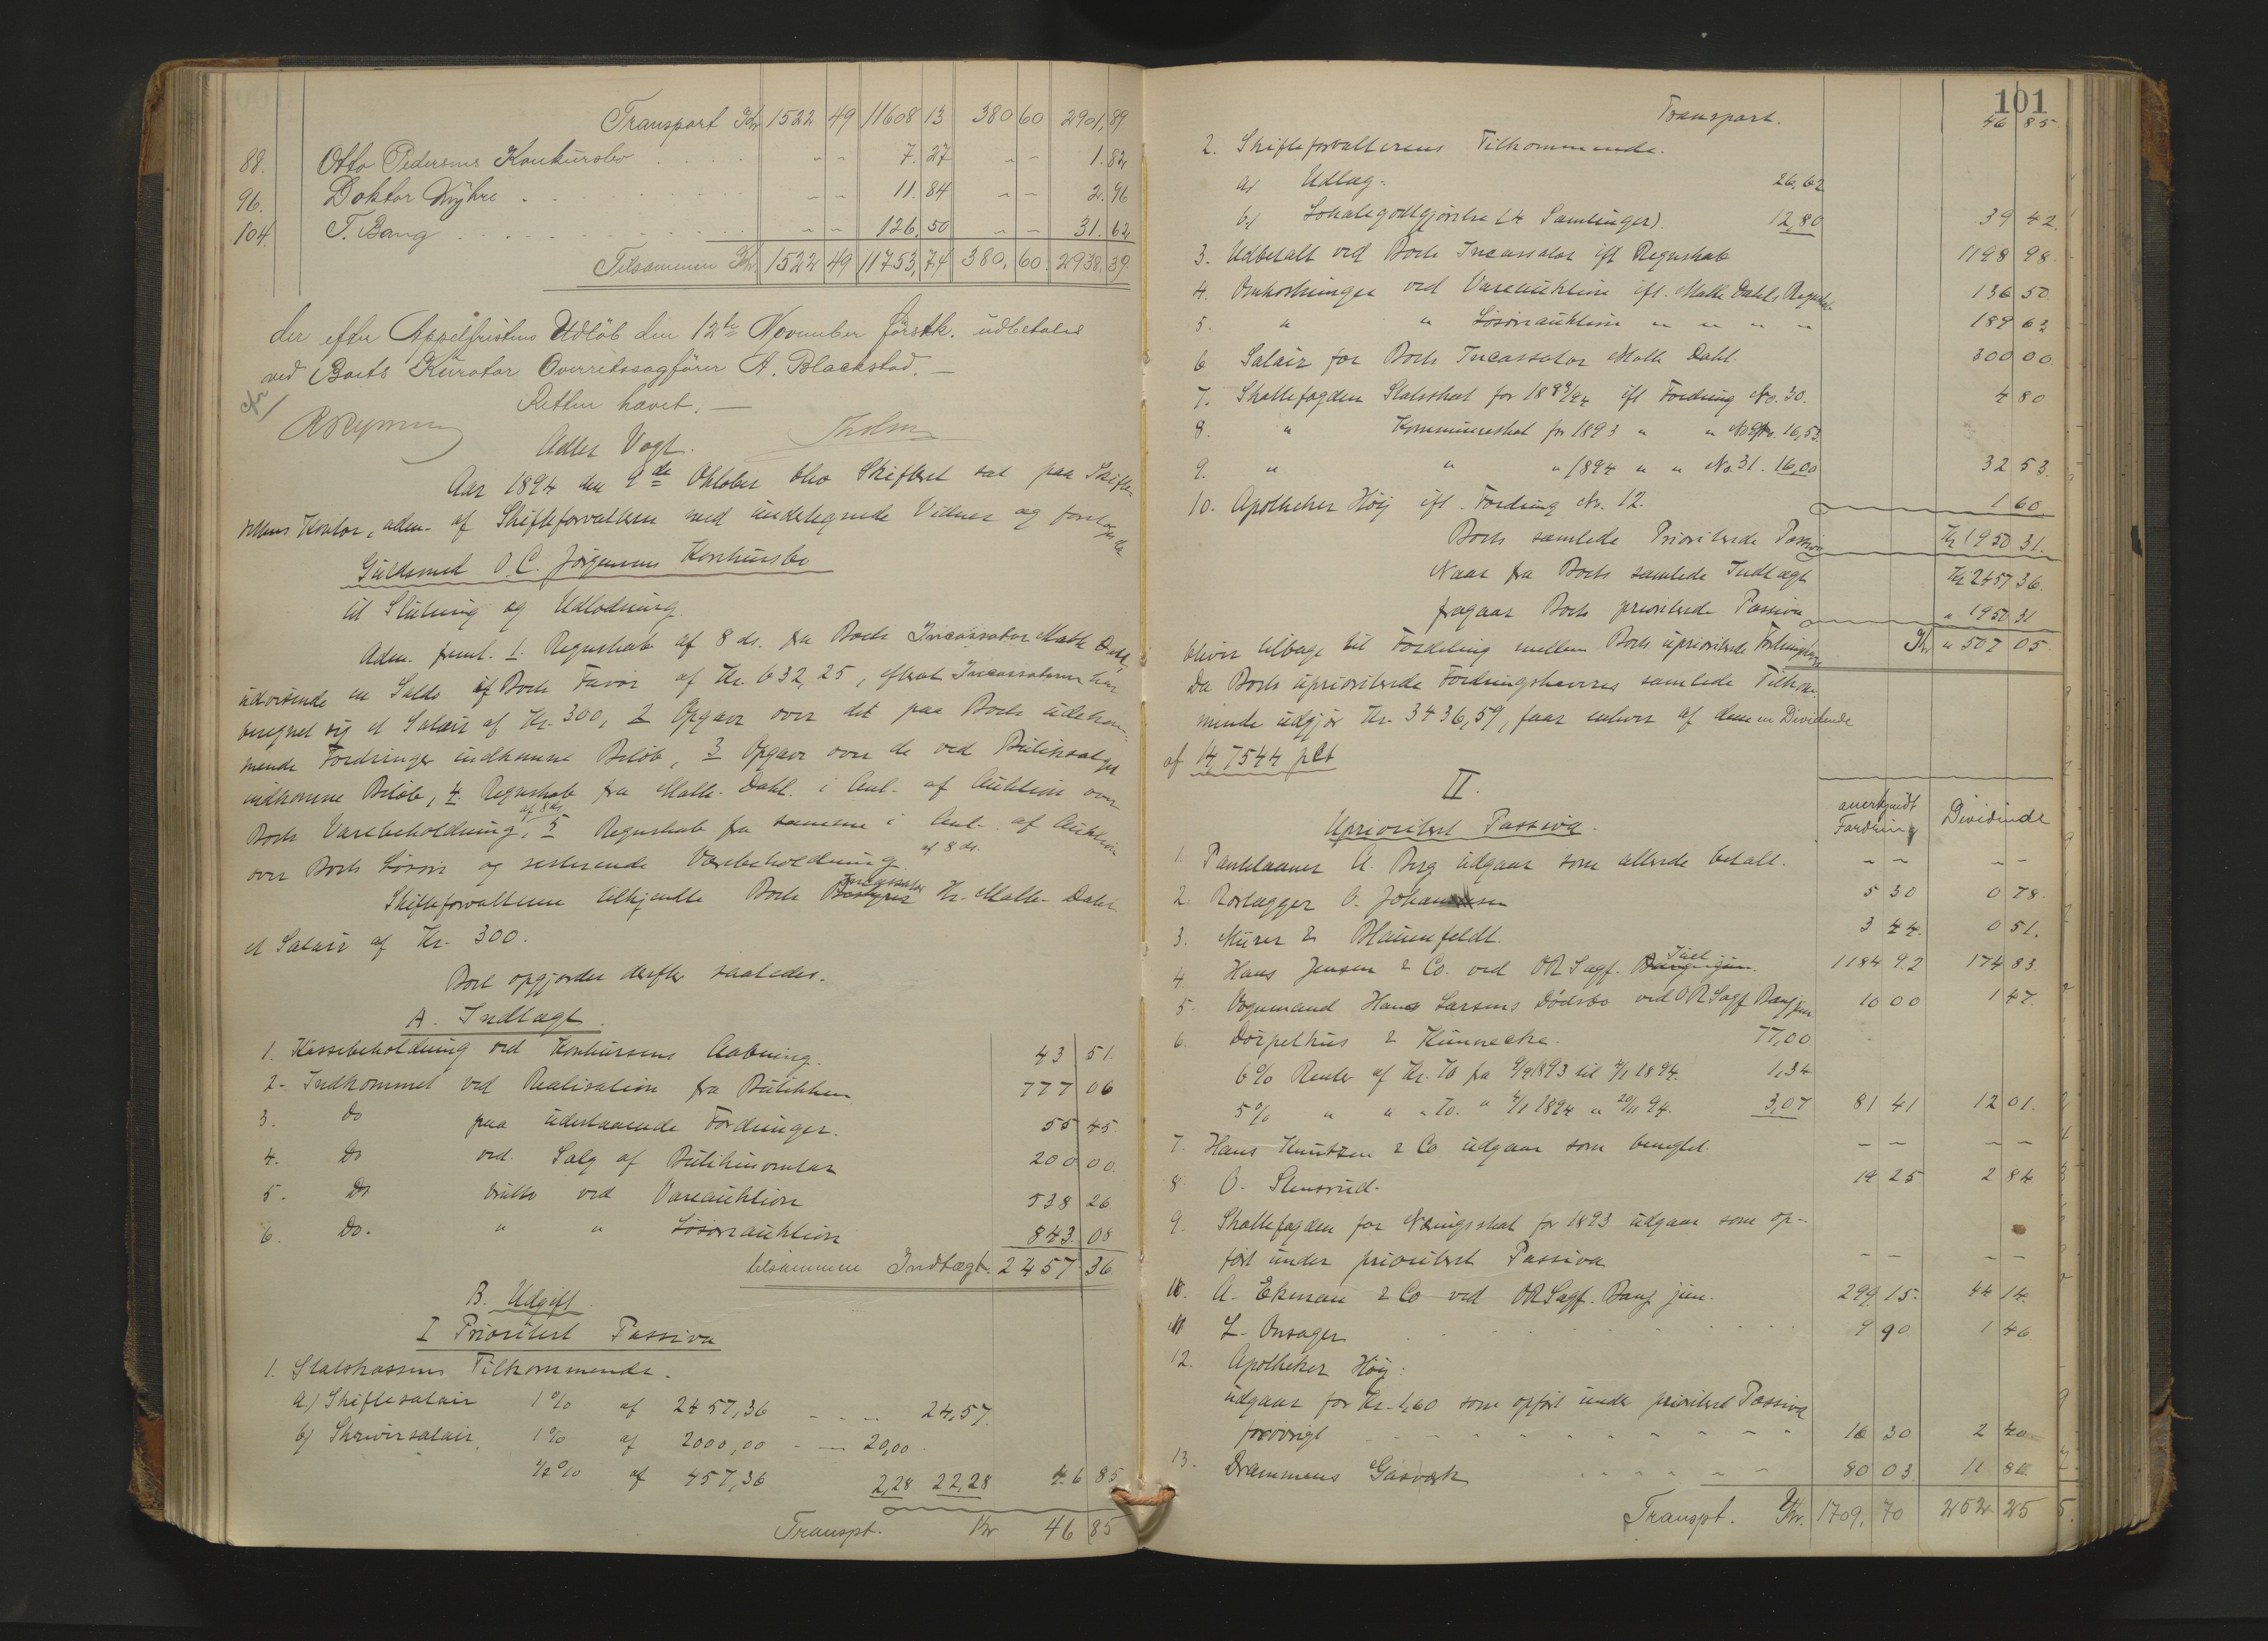 Transport Kr. 1522 49 11608 13 380 60 2901,89
88. Otto Pedersens Konkursbo . . . . - - 7.27 - - 1.82
96. Doktor Myhre . . . . - - 11.84 - - 2.96
104. T. Bang . . . . - - 126.50 - - 31.62
Tilsammen Kr. 1522 49 11753,74 380,60 2938,39
der efter Appelfristens Udløb den 12te November førstk. udbetales
ved Boets Kurator Overretssagfører A. Blackstad. —
Retten hævet. —
Adler Vogt.
Aar 1894 den 9de Oktober blev Skifteret sat paa Skifte-
rettens Kontor, adm. af Skifteforvalteren med undertegnede Vidner og foretoges
Guldsmed O. C. Jørgensens Konkursbo
til Slutning og Udlodning.
Adm. freml. 1. Regnskab af 8 ds. fra Boets Incassator Malth. Dahl,
udvisende en Saldo i Boets Favør af Kr. 632,25, efterat Incassatoren har
beregnet sig et Salair af Kr. 300, 2 Opgave over det paa Boets udekom-
mende Fordringer indkomne Beløb, 3 Opgave over de ved Butiksalget
indkomne Beløb, 4. Regnskab fra Malth. Dahl i Anl. af Auktion over
Boets Varebeholdning, af 8 ds. 5 Regnskab fra samme i Anl. af Auktion
over Boets Løsøre og resterende Varebeholdning af 8 ds.
Skifteforvalteren tilkjendte Boets Bestyrer Incassator Hr. Malth. Dahl
et Salair af Kr. 300.
Boet opgjordes derefter saaledes.
A. Indtægt.
1. Kassebeholdning ved Konkursens Aabning. 43 51.
2. Indkommet ved Realisation fra Butikken 777 06
3. Do paa udestaaende Fordringer. 55 45
4. Do ved Salg af Butikinventar 200 00
5. Do brutto ved Vareauktion 538 26
6. Do. " " Løsøreauktion 843 08
tilsammen Indtægt. 2457 36
B. Udgift.
I Prioritert Passiva
1. Statskassens Tilkommende.
a.) Skiftesalair 1% af 2457,36 - - - 24,57
b) Skriversalair 1% af 2000,00 - - 20,00
1/2% af 457,36 2,28 22,28 46 85
Transpt. Kr 46 85
101
Transport. 46 85
2. Skifteforvalterens Tilkommende.
a) Udlæg. 26,62
b) Lokalegodtgjørelse (4 Samlinger). 12,80 39 42
3. Udbetalt ved Boets Incassator ifl Regnskab 1198 98
4. Omkostninger ved Vareauktion ifl. Malth Dahls Regnskab 136 50
5. " " Løsøreauktion " " " " 189 63
6 Salair for Boets Incassator Malth Dahl. 300 00
7. Skattefogden Statsskat for 1893/94 ifl Fordring No. 30. 4 80
8. " Kommuneskat for 1893 " " No 9 Kr. 16,53
9. " " " 1894 " " No. 31. 16,00 32 53
10. Apotheker Høij ifl. Fordring Nr. 12. 1 60
Boets samlede Prioriterede Passiva Kr 1950 31.
Naar fra Boets samlede Indtægt Kr 2457 36
fragaar Boets prioriterede Passiva " 1950 31
bliver tilbage til Fordeling mellem Boets uprioriterede Fordringshavere Kr " 507 05
Da Boets uprioriterede Fordringshaveres samlede Tilkom-
mende udgjør Kr. 3436,59, faar enhver af dem en Dividende
af 14,7544 pCt
II.
Uprioritert Passiva. anerkjendt Fordring Dividende
1. Pantelaaner A. Berg udgaar som allerede betalt. - - - -
2. Rørlægger O. Johannesen 5 30 0 78.
3. Murer & Blauenfeldt. 3 44 0 51.
4. Hans Jensen & Co. ved ORSagf. Bang jun. Juel 1184 92 174 83
5. Vognmand Hans Larsens Dødsbo ved ORSagf Bang jun 10 00 1 47.
6. Dörpelhus & Künnecke. 77,00
6% Renter af Kr. 70 fra 4/9 1893 til 4/1 1894. 1,34
5% " " " 70. " 4/1 1894 " 20/11 94. 3,07 81 41 12 01.
7. Hans Knutzen & Co udgaar som benegtet. - - - -
8. O. Stensrud. 19 25 2 84
9. Skattefogden for Næringsskat for 1893 udgaar som op-
ført under prioritert Passiva - - - -
10. A. Ekman & Co ved ORSagf. Bang jun. 299 15. 44 14.
11 L. Onsager 9 90 1 46
12. Apotheker Høij:
udgaar for Kr. 1,60 som opført under prioritert Passiva
forøvrigt 16 30 2 40
13. Drammens Gasværk 80 03 11 81
Transpt. Kr. 1709,70 252 25